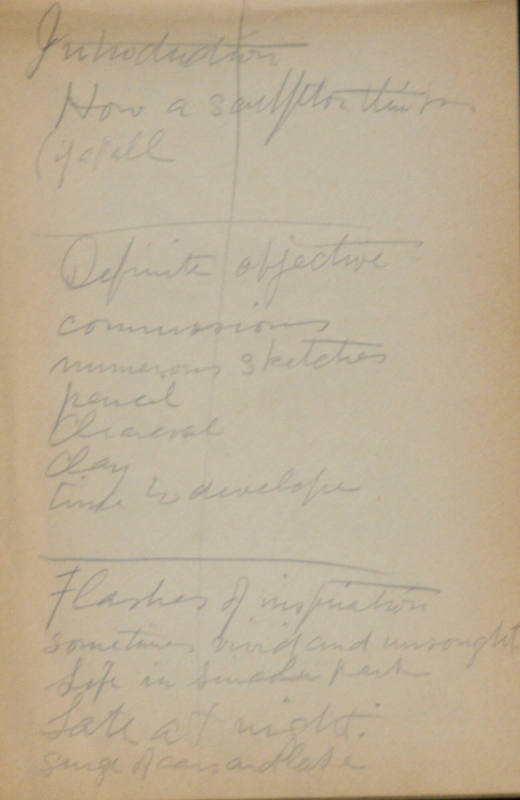 Introduction
How a sculptor thinks
(if at all
Definite objective
commissions
numerous sketches
pencil
Charcoal
Clay
time to develope
Flashes of inspiration
sometimes vivid and unsought
Life in Lincoln Park
Late at night.
surge of cars and lake